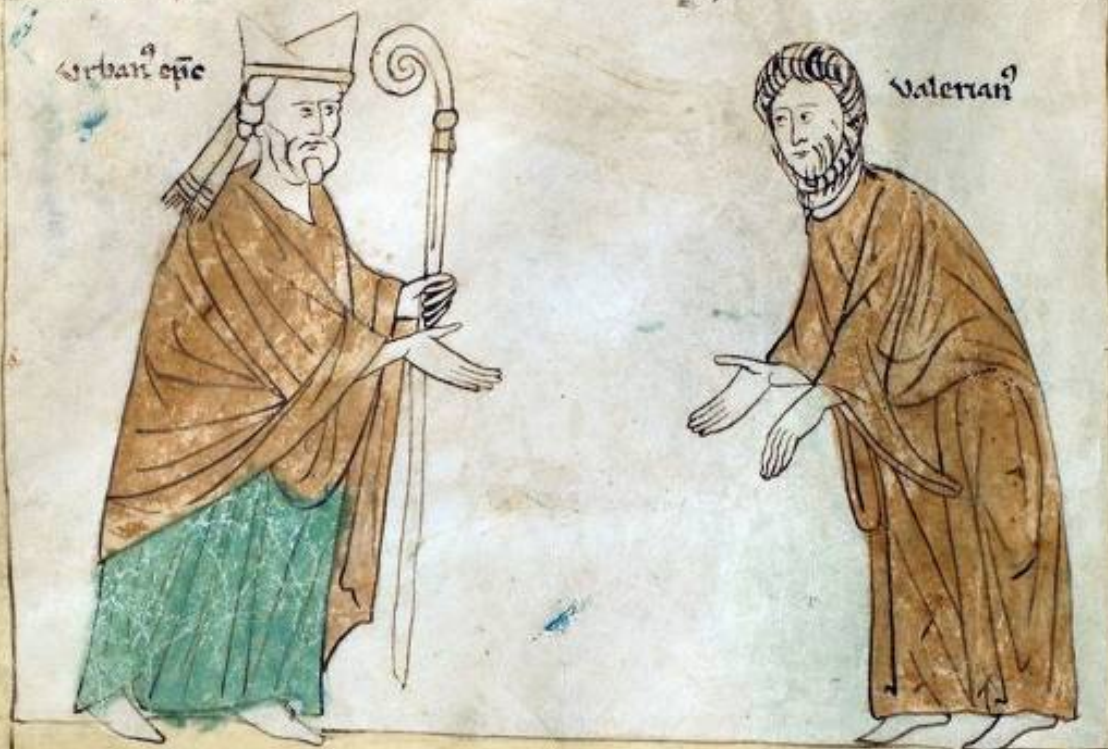 Urbanꝰ ep̄c
Valerianꝰ